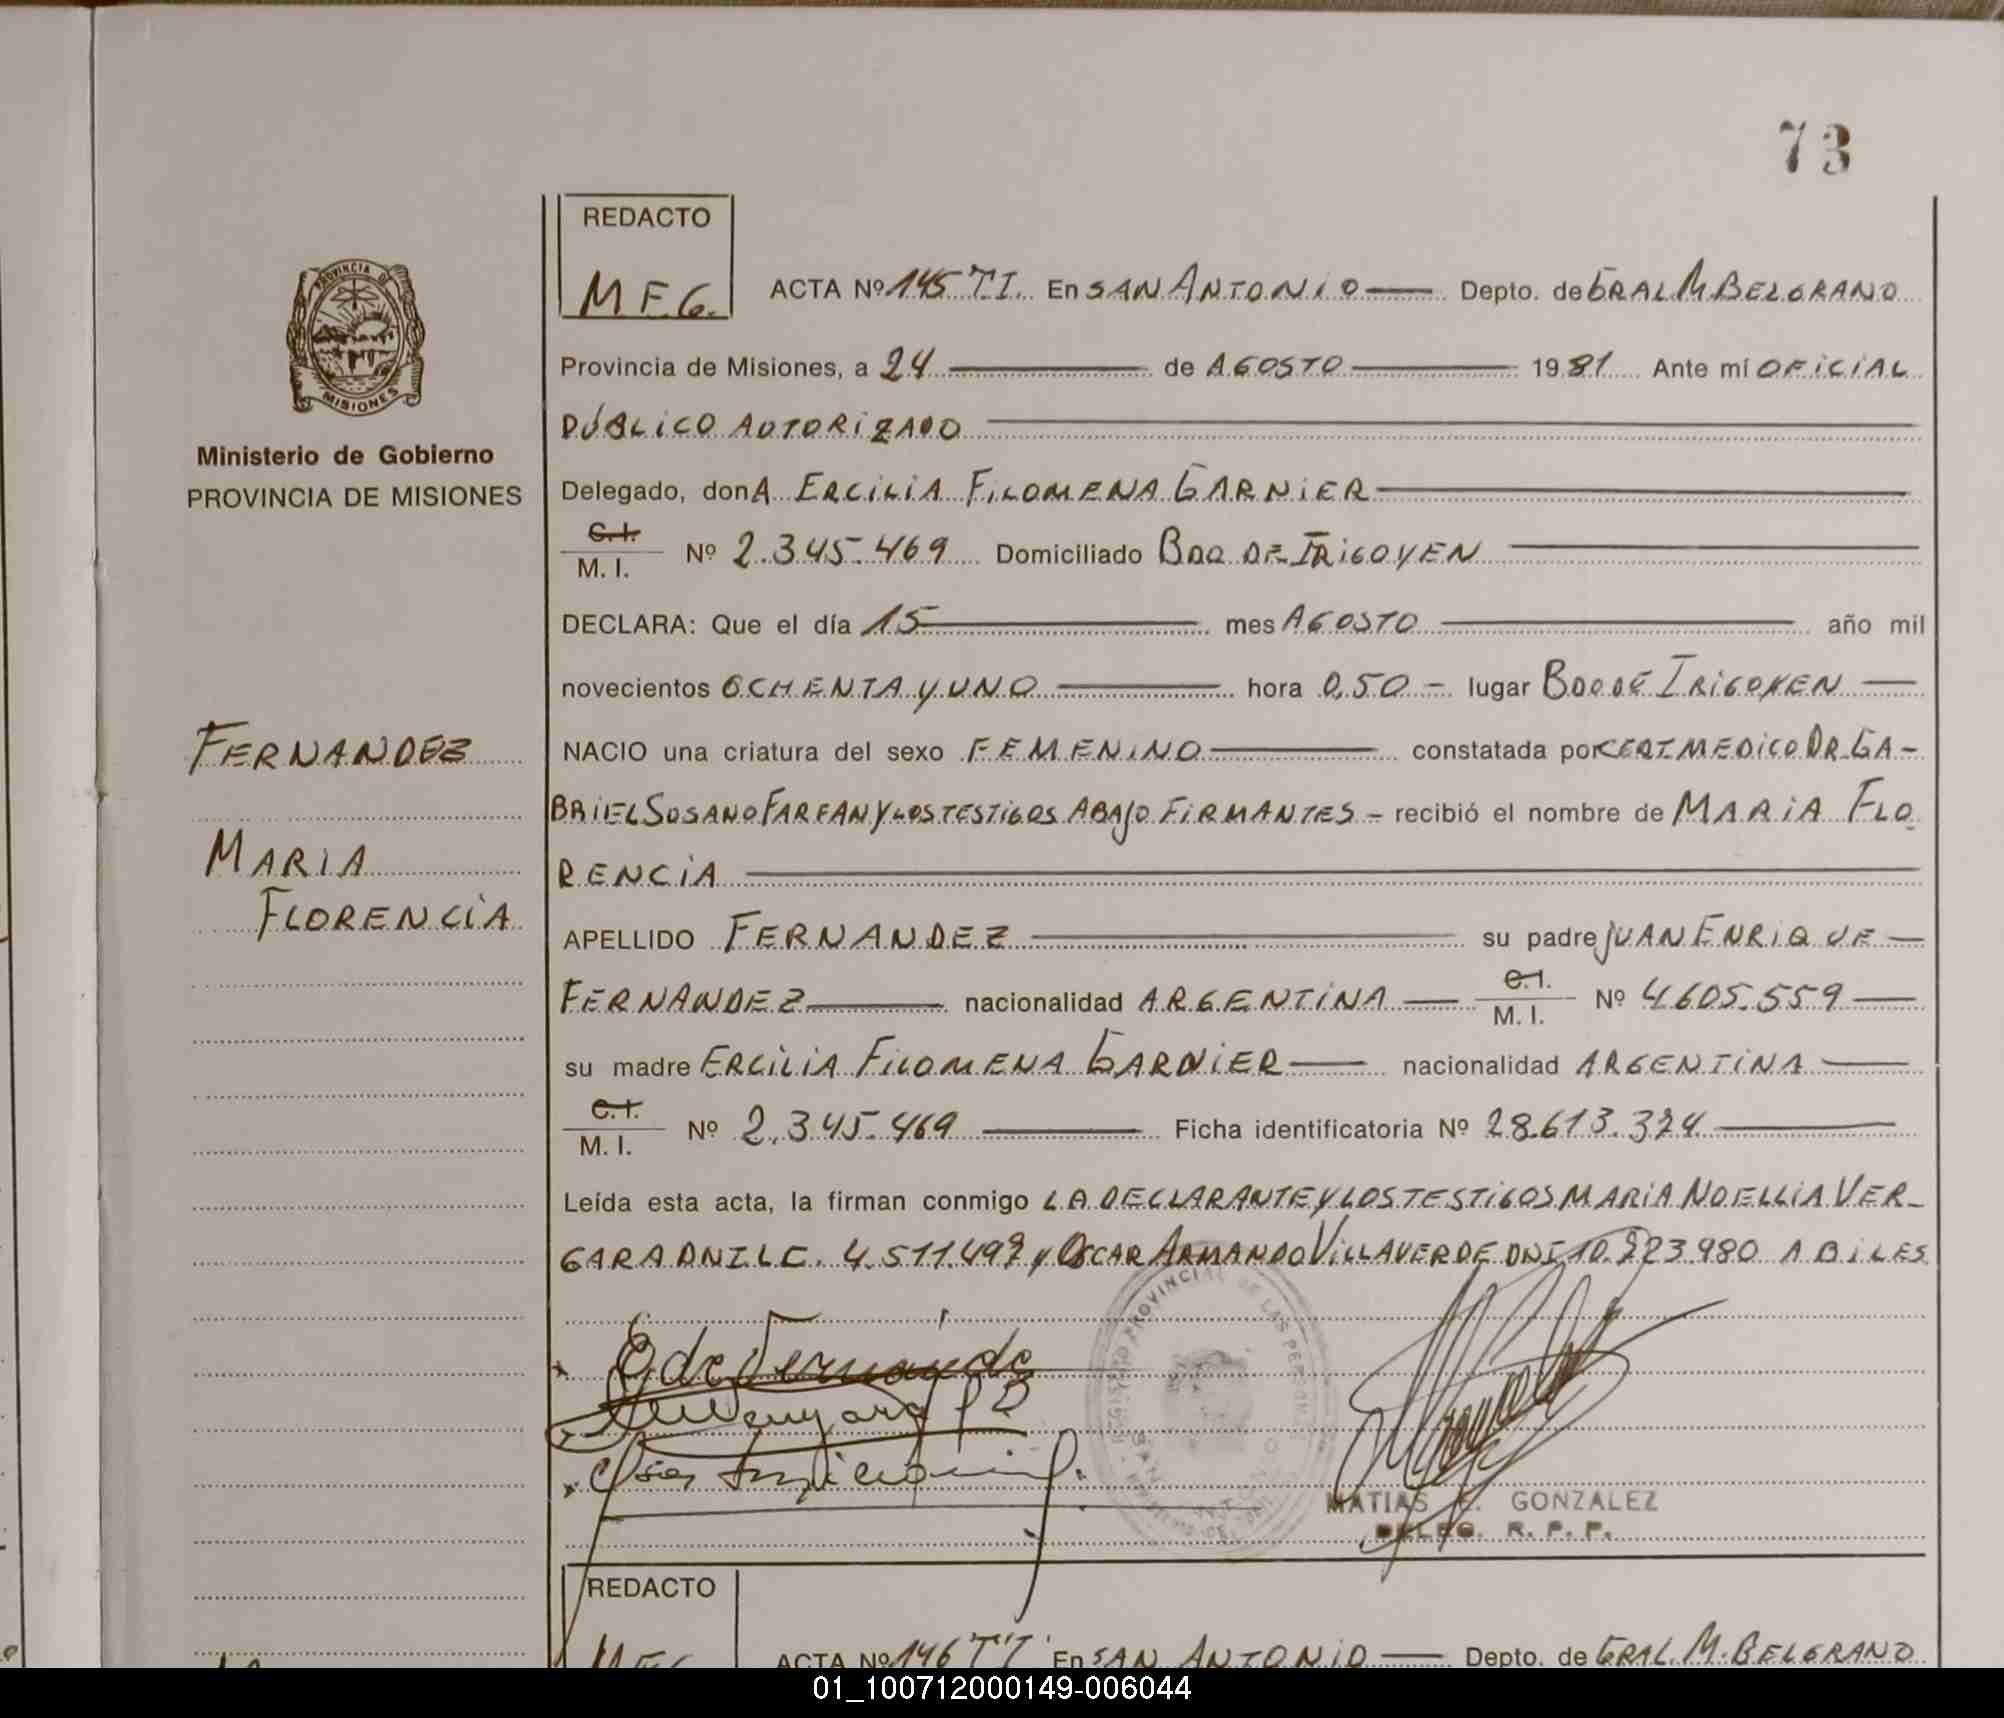 73
REDACTO
M F. G.
ACTA Nº 145 TI. En SAN ANTONIO Depto. de GRAL M. BELGRANO
Provincia de Misiones, a 24 de AGOSTO 1981 Ante mí OFICIAL
PÚBLICO AUTORIZADO
Delegado, donA ERCILIA FILOMENA GARNIER
C. I.
M. I. Nº 2.345.469 Domiciliado BDO DE IRIGOYEN
DECLARA: Que el día 15 mes AGOSTO año mil
novecientos OCHENTA Y UNO hora 0,50 - lugar BDO DE IRIGOYEN
NACIO una criatura del sexo FEMENINO constatada por CERT MEDICO DR. GA-
BRIEL SOSANO FARFAN Y LOS TESTIGOS ABAJO FIRMANTES - recibió el nombre de MARIA FLO
RENCIA
APELLIDO FERNANDEZ su padre JUAN ENRIQUE
FERNANDEZ nacionalidad ARGENTINA C.I. M. I. Nº 4.605.559
su madre ERCILIA FILOMENA GARNIER nacionalidad ARGENTINA
C. I.
M. I. Nº 2.345.469 Ficha identificatoria Nº 28.613.324
Leída esta acta, la firman conmigo LA DECLARANTE Y LOS TESTIGOS MARIA NOELLIA VER-
GARA DNI LC. 4.511.492 y OSCAR ARMANDO VILLAVERDE DNI 10.223.980 ABILES
E de Fernande
MATIAS E. GONZALEZ
DELEG. R. P. P.
PROVINCIA DE
MISIONES
Ministerio de Gobierno
PROVINCIA DE MISIONES
FERNANDEZ
MARIA
FLORENCIA
REGISTRO PROVINCIAL DE LAS PERSONAS
REDACTO
ACTA Nº 146 TI En SAN ANTONIO Depto. de GRAL. M. BELGRANO
01_100712000149-006044